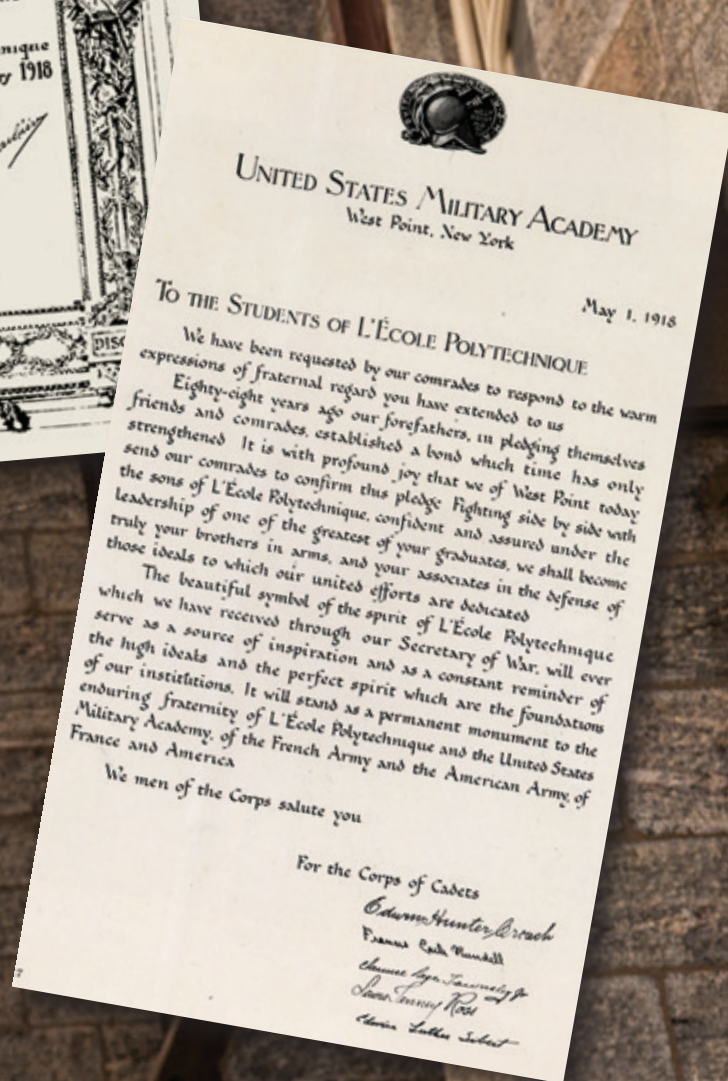 nique
1918
DISC
UNITED STATES MILITARY ACADEMY
West Point, New York
May 1, 1918
TO THE STUDENTS OF L'ÉCOLE POLYTECHNIQUE
We have been requested by our comrades to respond to the warm
expressions of fraternal regard you have extended to us
Eighty-eight years ago our forefathers, in pledging themselves
friends and comrades, established a bond which time has only
strengthened It is with profound joy that we of West Point today
send our comrades to confirm this pledge Fighting side by side with
the sons of L'École Polytechnique, confident and assured under the
leadership of one of the greatest of your graduates, we shall become
truly your brothers in arms, and your associates in the defense of
those ideals to which our united efforts are dedicated
The beautiful symbol of the spirit of L'École Polytechnique
which we have received through our Secretary of War, will ever
serve as a source of inspiration and as a constant reminder of
the high ideals and the perfect spirit which are the foundations
of our institutions. It will stand as a permanent monument to the
enduring fraternity of L'École Polytechnique and the United States
Military Academy, of the French Army and the American Army, of
France and America
We men of the Corps salute you
For the Corps of Cadets
Edwin Hunter
Ross
Luther